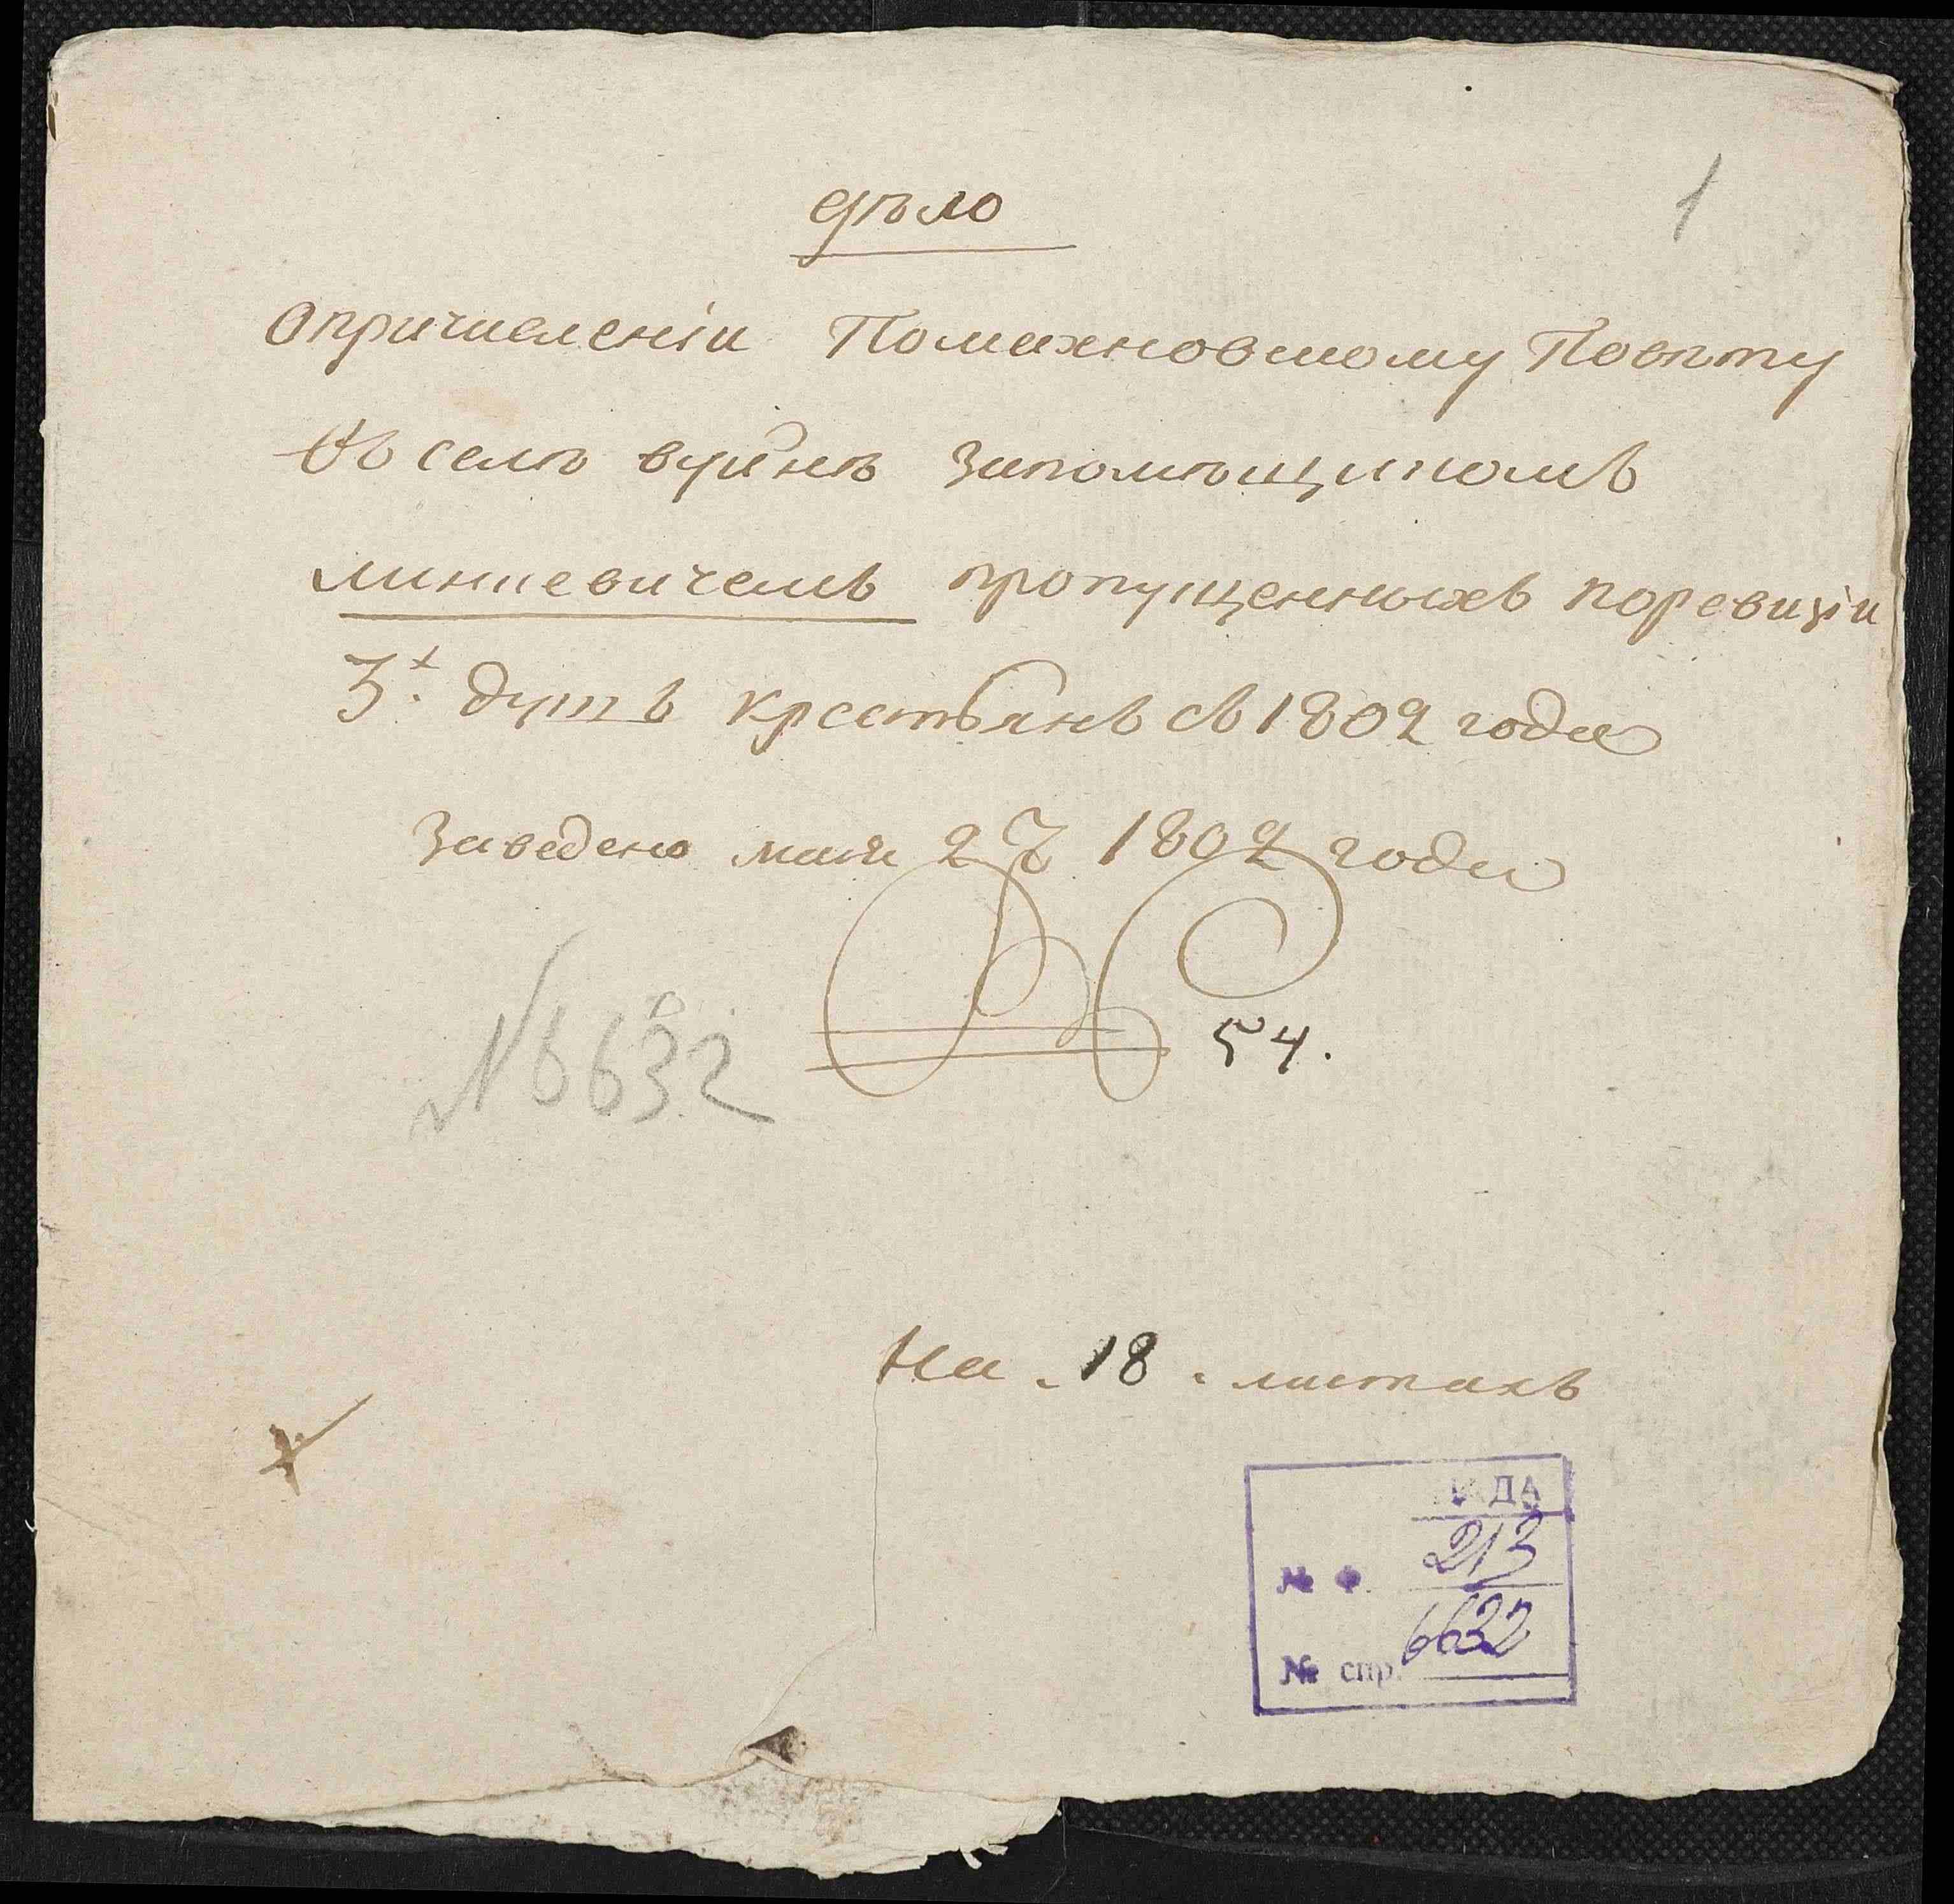 1
дѣло
О причислении По махновскому Повѣту
Въ селѣ вуйнѣ за помѣщикомъ
минкевичемъ пропущенныхъ по ревизіи
3х. душъ крестьянъ съ 1802 года
Заведено мая 27 1802 года
№ 6632
54.
На . 18 . листахъ
ДА
№ Ф. 213
№ спр. 6632